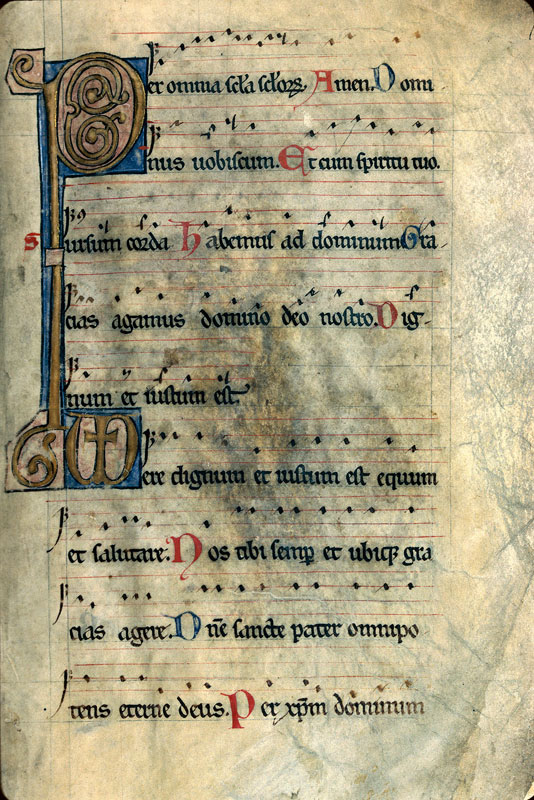 Per omnia scła scłorꝝ. Amen. Domi
nus uobiscum. Et cum spiritu tuo.
Sursum corda Habemus ad dominum Gra
cias agamus domino deo nostro. Dig-
num et iustum est.
Were dignum et iustum est equum
et salutare. Nos tibi semꝑ et ubiqꝫ gra
cias agere. Dn̄e sancte pater omnipo
tens eterne deus. Per xp̄m dominum